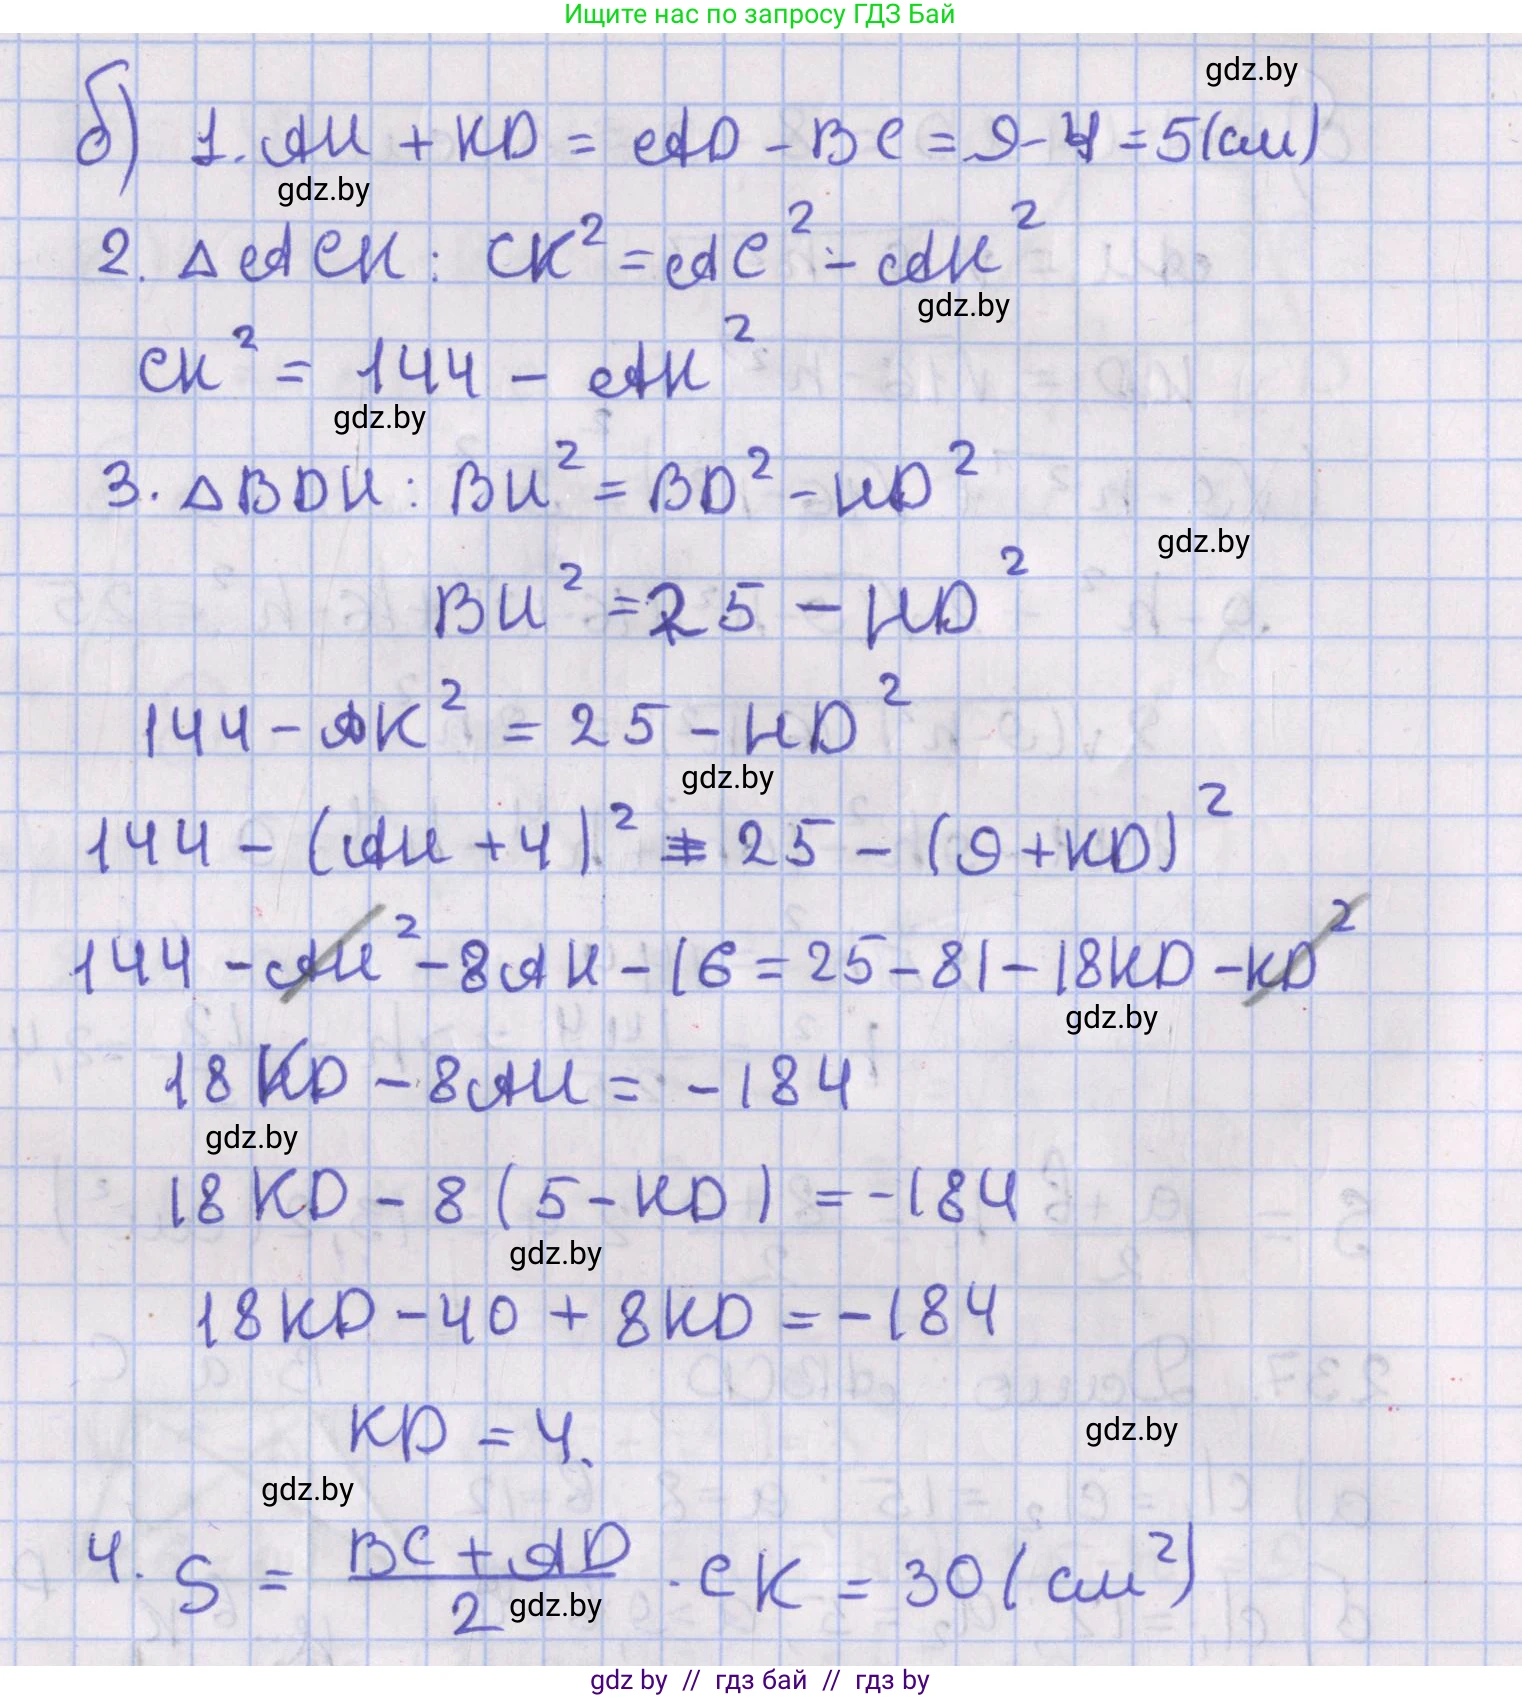 Ищите нас по запросу ГДЗ Бай
gdz.by
б) 1. AH + KD = AD - BC = 9 - 4 = 5 (см)
gdz.by
2. △ACK: CK² = AC² - AK²
gdz.by
CK² = 144 - AK²
gdz.by
3. △BDH: BH² = BD² - HD²
gdz.by
BH² = 25 - HD²
144 - AK² = 25 - HD²
gdz.by
144 - (AH + 4)² = 25 - (9 + KD)²
144 - AH² - 8AH - 16 = 25 - 81 - 18KD - KD²
gdz.by
18KD - 8AH = -184
gdz.by
18KD - 8(5 - KD) = -184
gdz.by
18KD - 40 + 8KD = -184
KD = 4.
gdz.by
gdz.by
4. S = (BC + AD)/2 · CK = 30 (см²)
gdz.by
gdz by // гдз бай // гдз by